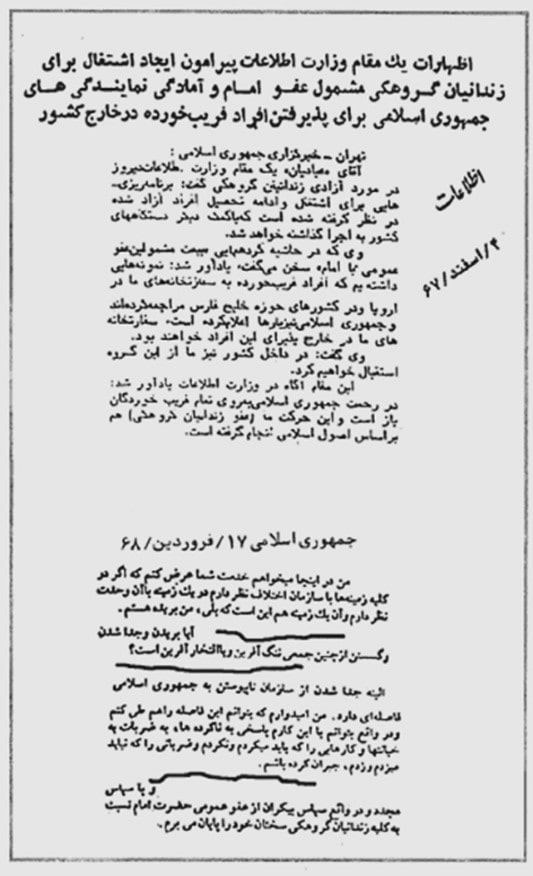 اظهارات یك مقام وزارت اطلاعات پیرامون ایجاد اشتغال برای
زندانیان گروهکی مشمول عفو امام و آمادگی نمایندگی های
جمهوری اسلامی برای پذیرفتن افراد فریب خورده در خارج کشور
تهران - خبرگزاری جمهوری اسلامی :
آقای «عبادیان» یک مقام وزارت اطلاعات دیروز
در مورد آزادی زندانیان گروهکی گفت: برنامه‌ریزی-
هایی برای اشتغال و ادامه تحصیل افراد آزاد شده
در نظر گرفته شده است که با کمک دیگر دستگاههای
کشور به اجرا گذاشته خواهد شد.
وی که در حاشیه گردهمایی بیعت مشمولین عفو
عمومی «با امام» سخن می‌گفت، یادآور شد: نمونه‌هایی
داشته‌یم که افراد فریب‌خورده به سفارتخانه‌های ما در
اروپا و در کشورهای حوزه خلیج فارس مراجعه کرده‌اند
و جمهوری اسلامی نیز بارها اعلام کرده است، سفارتخانه
های ما در خارج پذیرای این افراد خواهند بود.
وی گفت: در داخل کشور نیز ما از این گروه
استقبال خواهیم کرد.
این مقام آگاه در وزارت اطلاعات یادآور شد:
در رحمت جمهوری اسلامی بروی تمام فریب خوردگان
باز است و این حرکت ما (عفو زندانیان گروهکی) هم
براساس اصول اسلامی انجام گرفته است.
اطلاعات
۴/اسفند/۶۷
جمهوری اسلامی ۱۷/فروردین/۶۸
من در اینجا میخواهم خدمت شما عرض کنم که اگر در
کلیه زمینه‌ها با سازمان اختلاف نظر دارم در یک زمینه با آن وحدت
نظر دارم و آن یک زمینه هم این است که بلی، من بریده هستم.
آیا بریدن و جدا شدن
و گسستن از چنین جمعی ننگ آفرین و یا افتخار آفرین است؟
البته جدا شدن از سازمان تا پیوستن به جمهوری اسلامی
فاصله‌ای دارد. من امیدوارم که بتوانم این فاصله را هم طی کنم
و در واقع بتوانم با این کارم پاسخی به ناکرده ها، به ضربات به
خیانتها و کارهایی را که باید میکردم و نکردم و ضرباتی را که نباید
میزدم و زدم، جبران کرده باشم.
و با سپاس
مجدد و در واقع سپاس بیکران از عفو عمومی حضرت امام نسبت
به کلیه زندانیان گروهکی سخنان خود را پایان می برم.